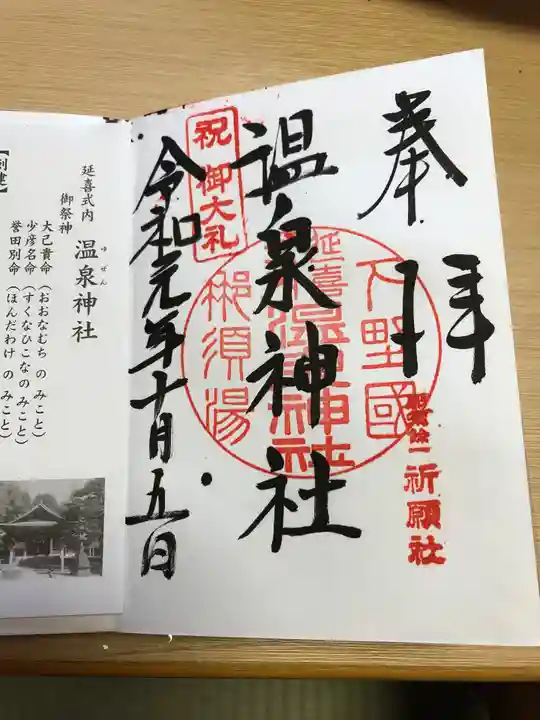 奉拝
祈願社
温泉神社
下野國
延喜
温泉神社
那須湯
祝 御大礼
令和元年十月五日
延喜式内 温泉神社
ゆぜん
御祭神
大己貴命(おおなむち のみこと)
少彦名命(すくなひこなのみこと)
誉田別命(ほんだわけ のみこと)